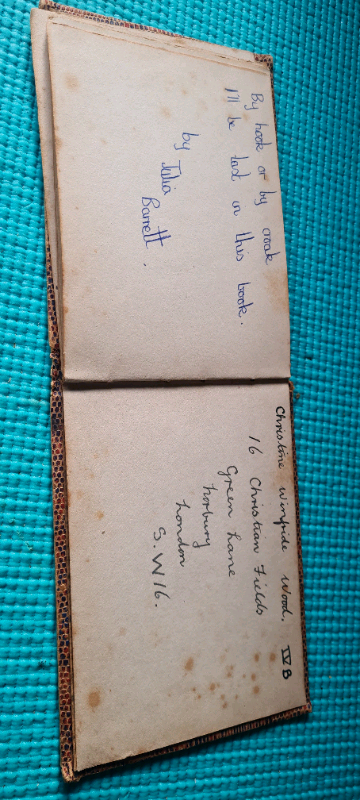 By hook or by crook
I'll be last in this book.
by Julia
Barrett.
Christine Winfride Wood. IV B
16 Christian Fields
Green Lane
Norbury
London
S.W16.